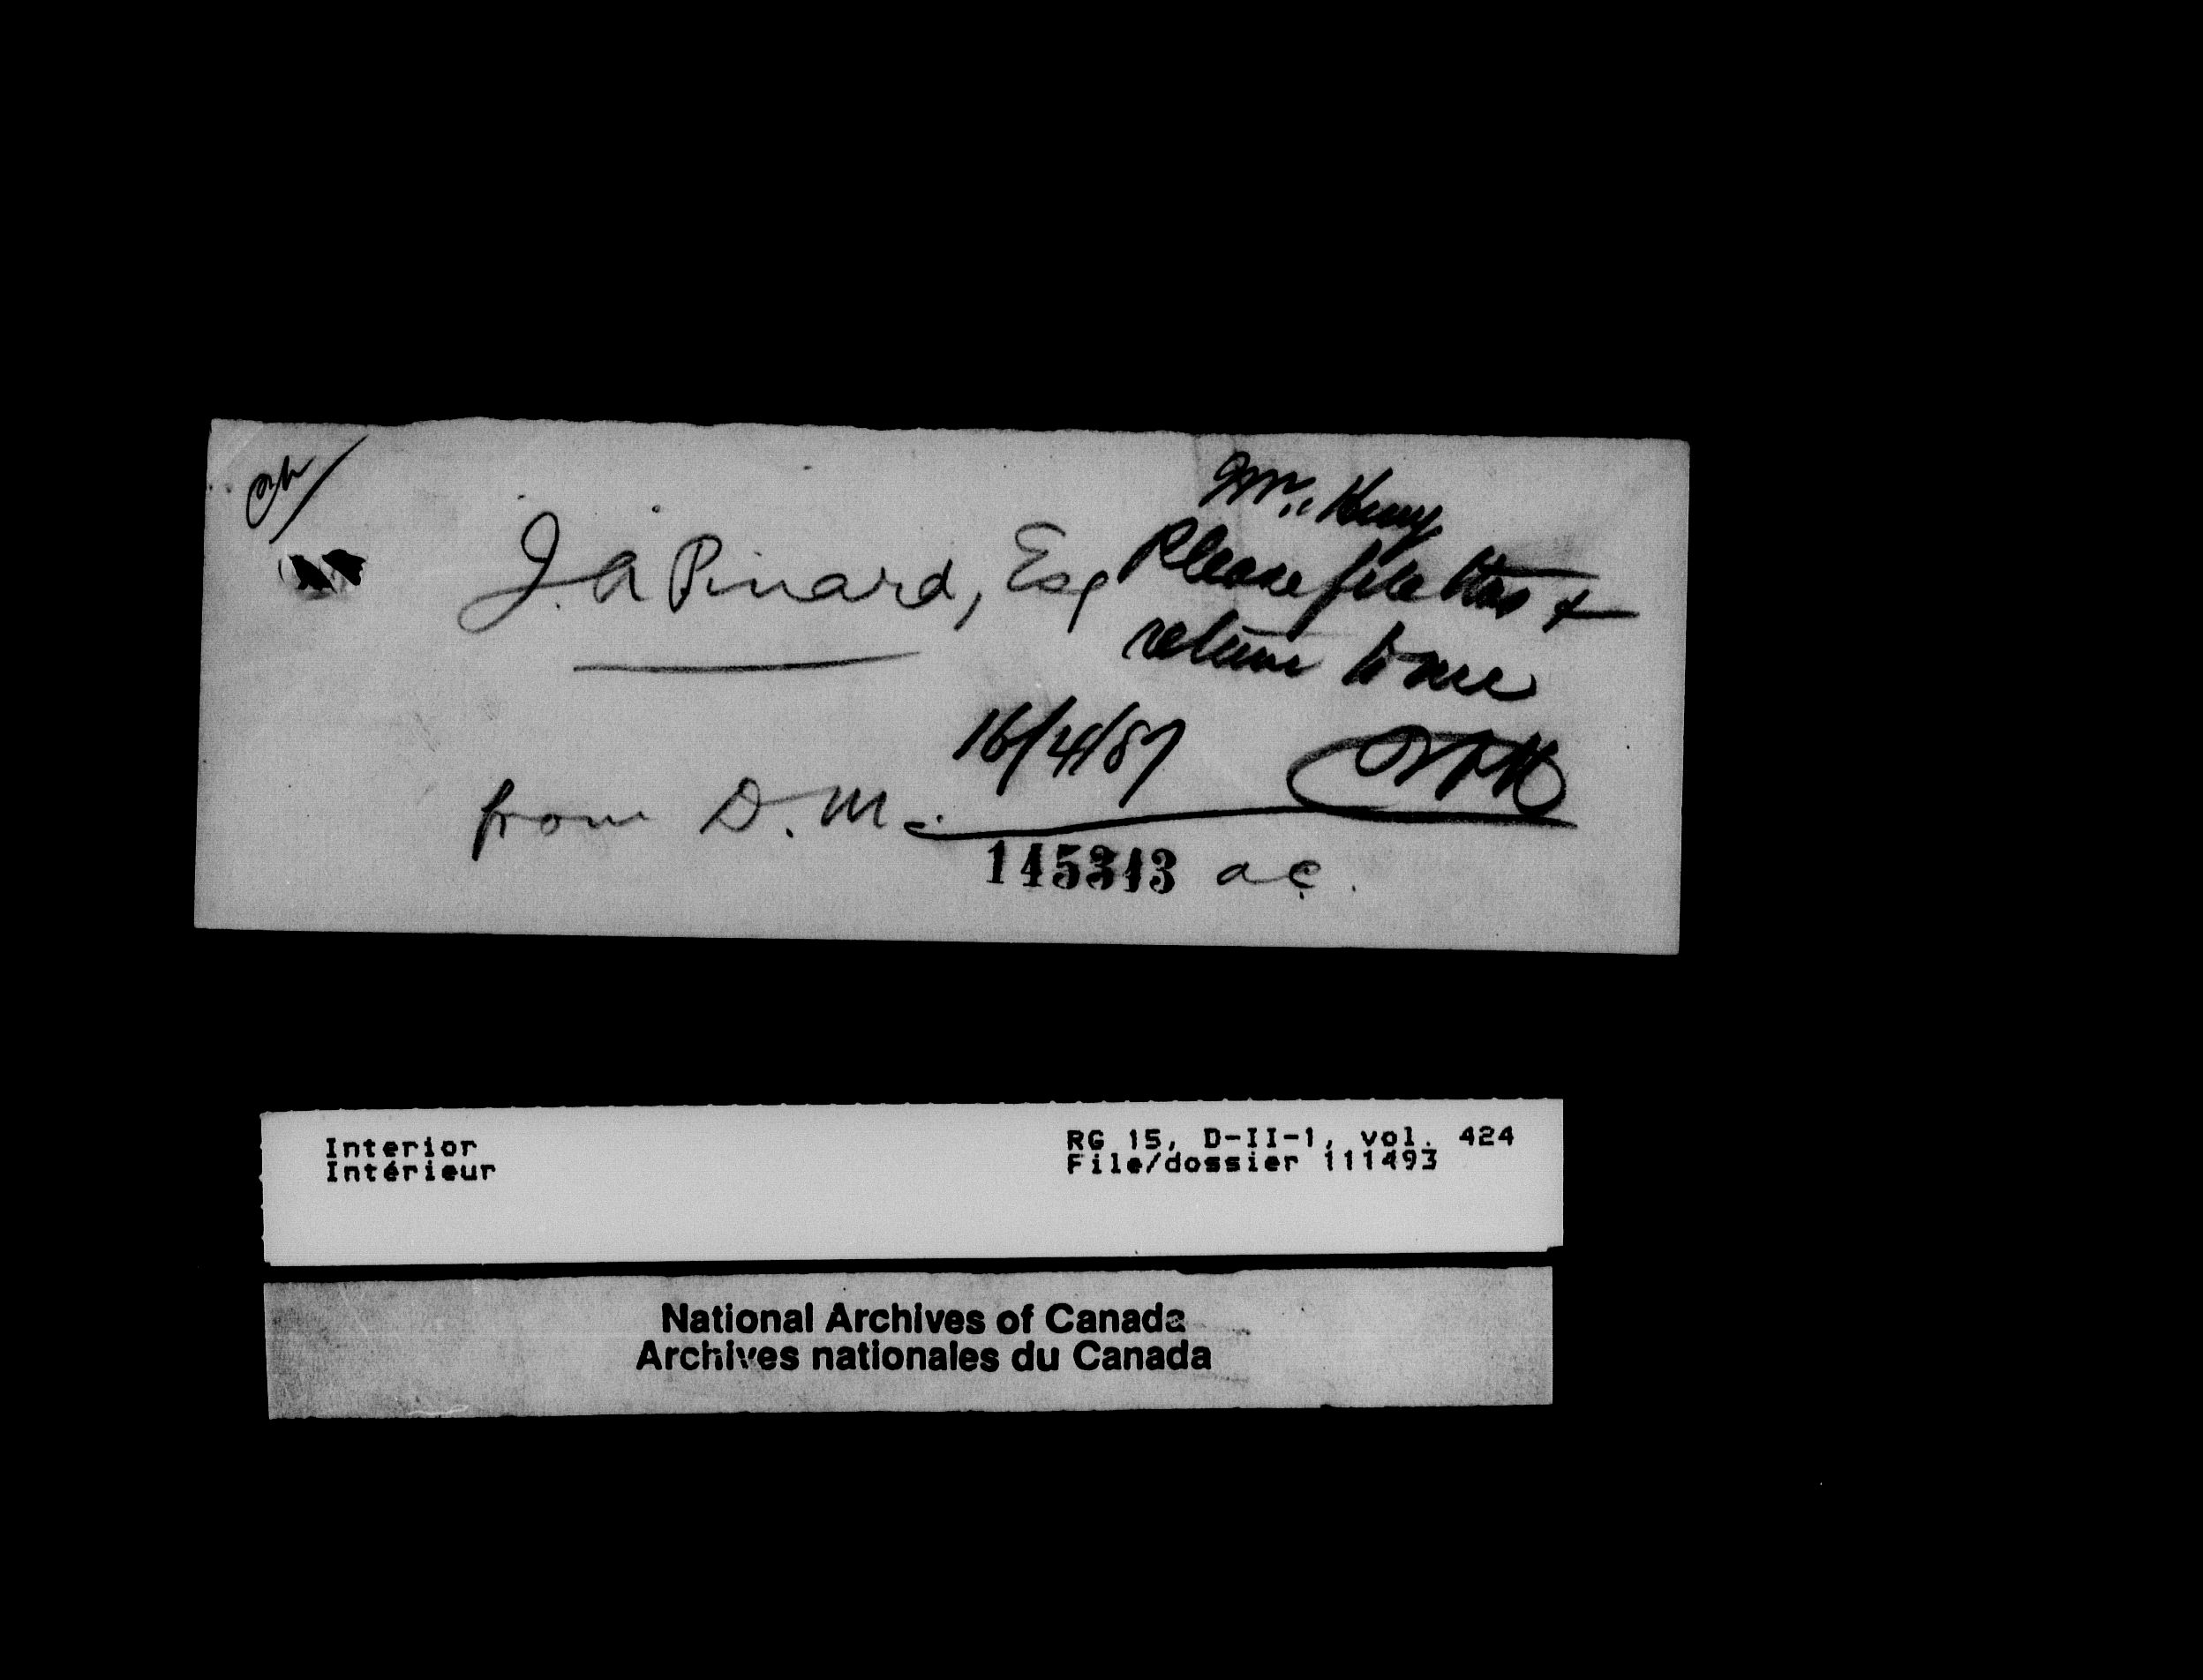 Mr. Henry
J. A Pinard, Esq
Please file this &
return to me
16/4/87
from D. M.
145313 ac.
Interior
Intérieur
RG 15, D-II-1, vol. 424
File/dossier 111493
National Archives of Canada
Archives nationales du Canada